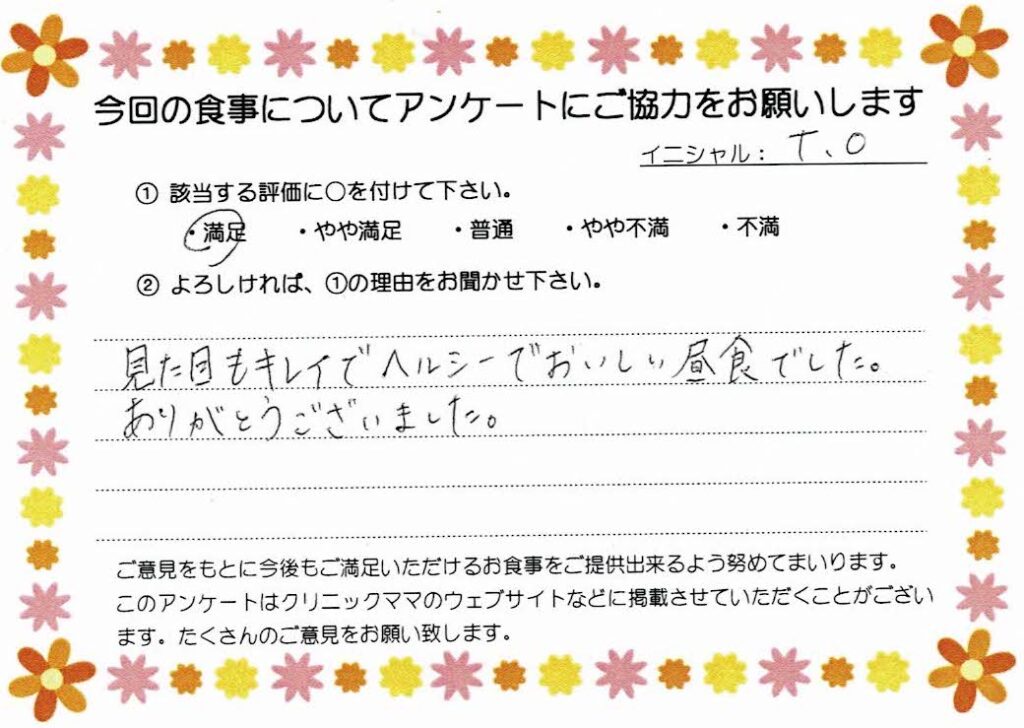 今回の食事についてアンケートにご協力をお願いします
イニシャル： T.O
① 該当する評価に○を付けて下さい。
・満足 ・やや満足 ・普通 ・やや不満 ・不満
② よろしければ、①の理由をお聞かせ下さい。
見た目もキレイでヘルシーでおいしい昼食でした。
ありがとうございました。
ご意見をもとに今後もご満足いただけるお食事をご提供出来るよう努めてまいります。
このアンケートはクリニックママのウェブサイトなどに掲載させていただくことがござい
ます。たくさんのご意見をお願い致します。